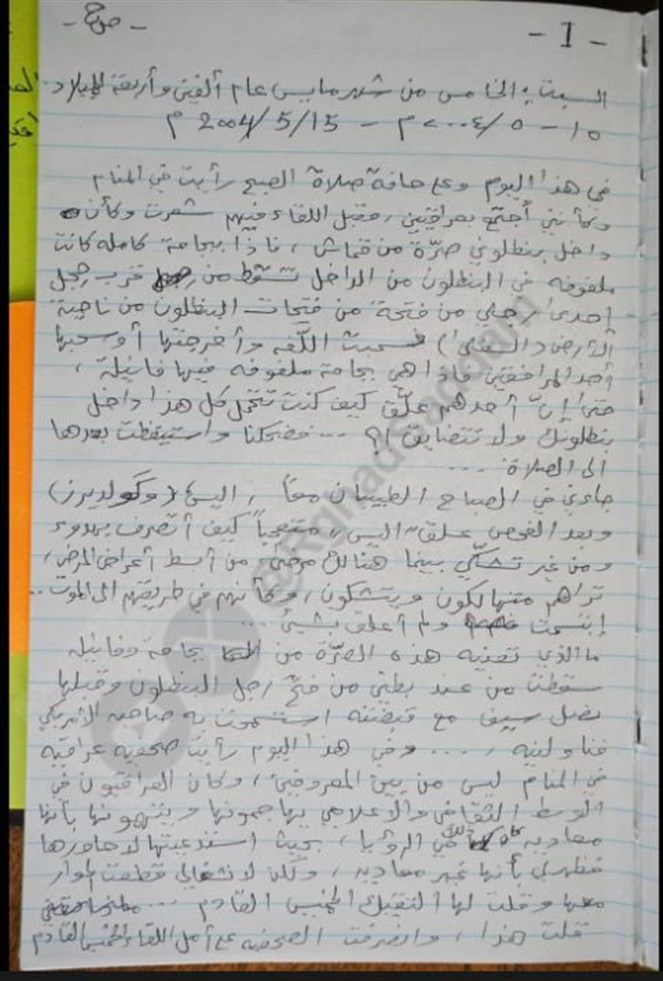 - ص ح -
- I -
السبت: الخامس من شهر مايس عام ألفين وأربعة للميلاد.
١٥ - ٥ / ٢٠٠٤ م - 15 / 5 / 2004 م
في هذا اليوم وعلى حافة صلاة الصبح رأيت في المنام
وكأنني أجتمع بعراقيين، وقبل اللقاء فيهم شعرت وكأن
داخل بنطلوني صرّة من قماش، فإذا بيجامة كاملة كانت
ملفوفه في البنطلون من الداخل تسقط من قرب رجل
إحدى رجلي من فتحة من فتحات البنطلون من ناحية
الأرض (السفلى) فسحبت اللّفه وأخرجتها أو سحبها
أحد المرافقين فإذا هي بجامة ملفوفه فيها فانيلة،
حتى إنّ أحدهم علّق كيف كنت تتحمل كل هذا داخل
بنطلونك ولا تتضايق؟! ... فضحكنا واستيقظت بعدها
الى الصلاة ...
جاءني في الصباح الطبيبان معاً، اليس (وگولديرز)
وبعد الفحص علق اليس متعجباً كيف أتصرف بهدوء
ومن غير تشكّي بينما هنالك مرضى من أبسط أعراض المرض،
تراهم متهالكون ويتشكون، وكأنهم في طريقهم الى الموت..
إبتسمت ولم أعلق بشيئ ...
ما الذي تعنيه هذه الصرّة من بجامة وفانيله
سقطت من عند بطني من فتح رجل البنطلون وقبلها
نصل سيف مع قبضته استسمحت به صاحبه الأمريكي
فناولنيه، .... وفي هذا اليوم رأيت صحفيه عراقيه
في المنام ليس من بين المعروفين، وكان العراقيون في
الوسط الثقافي والاعلامي يهاجمونها ويتهمونها بأنها
معاديه في الرؤيا، بحيث استدعيتها لاحاورها
فظهر لي بأنها غير معاديه، ولكن لانشغالي قطعت الحوار
معها وقلت لها ألتقيك الخميس القادم ...
قلت هذا، وانصرفت الصحفيه على أمل اللقاء الخميس القادم
@RghadSaddam